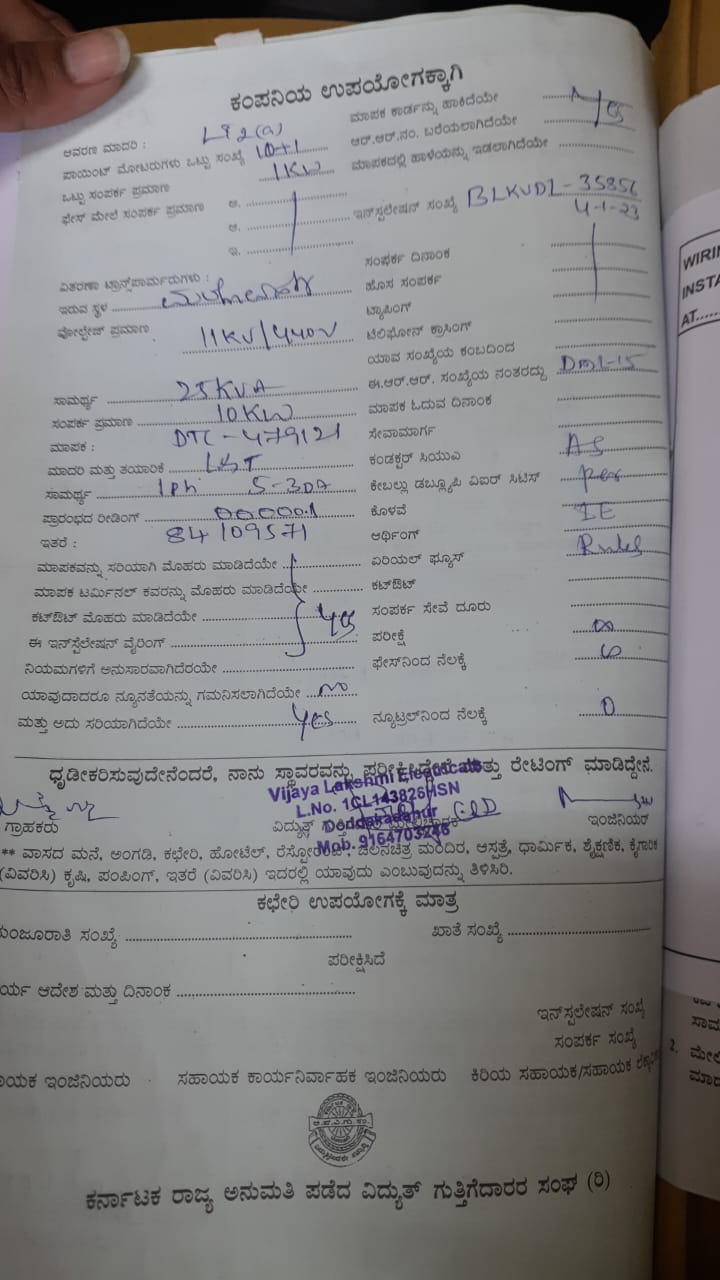 ಕಂಪನಿಯ ಉಪಯೋಗಕ್ಕಾಗಿ
ಆವರಣ ಮಾದರಿ : LT2(a)
ಪಾಯಿಂಟ್ ಮೋಟರುಗಳು ಒಟ್ಟು ಸಂಖ್ಯೆ 10+1
ಒಟ್ಟು ಸಂಪರ್ಕ ಪ್ರಮಾಣ 1KW
ಫೇಸ್ ಮೇಲೆ ಸಂಪರ್ಕ ಪ್ರಮಾಣ ಅ.
ಆ.
ಇ.
ವಿತರಣಾ ಟ್ರಾನ್ಸ್‌ಪಾರ್ಮರುಗಳು :
ಇರುವ ಸ್ಥಳ
ವೋಲ್ಟೇಜ್ ಪ್ರಮಾಣ 11KV/440V
ಸಾಮರ್ಥ್ಯ 25KVA
ಸಂಪರ್ಕ ಪ್ರಮಾಣ 10KW
ಮಾಪಕ : DTC-479121
ಮಾದರಿ ಮತ್ತು ತಯಾರಿಕೆ L&T
ಸಾಮರ್ಥ್ಯ 1ph 5-30A
ಪ್ರಾರಂಭದ ರೀಡಿಂಗ್ 00000.1
ಇತರೆ : 84109571
ಮಾಪಕವನ್ನು ಸರಿಯಾಗಿ ಮೊಹರು ಮಾಡಿದೆಯೇ
ಮಾಪಕ ಟರ್ಮಿನಲ್ ಕವರನ್ನು ಮೊಹರು ಮಾಡಿದೆಯೇ
ಕಟ್‌ಔಟ್ ಮೊಹರು ಮಾಡಿದೆಯೇ yes
ಈ ಇನ್‌ಸ್ಟಲೇಷನ್ ವೈರಿಂಗ್
ನಿಯಮಗಳಿಗೆ ಅನುಸಾರವಾಗಿದೆರಯೇ
ಯಾವುದಾದರೂ ನ್ಯೂನತೆಯನ್ನು ಗಮನಿಸಲಾಗಿದೆಯೇ no
ಮತ್ತು ಅದು ಸರಿಯಾಗಿದೆಯೇ yes
ಮಾಪಕ ಕಾರ್ಡನ್ನು ಹಾಕಿದೆಯೇ yes
ಆರ್.ಆರ್.ನಂ. ಬರೆಯಲಾಗಿದೆಯೇ
ಮಾಪಕದಲ್ಲಿ ಹಾಳೆಯನ್ನು ಇಡಲಾಗಿದೆಯೇ
ಇನ್‌ಸ್ಟಲೇಷನ್ ಸಂಖ್ಯೆ
4-1-23
ಸಂಪರ್ಕ ದಿನಾಂಕ
ಹೊಸ ಸಂಪರ್ಕ
ಟ್ಯಾಪಿಂಗ್
ಟೆಲಿಫೋನ್ ಕ್ರಾಸಿಂಗ್
ಯಾವ ಸಂಖ್ಯೆಯ ಕಂಬದಿಂದ
ಈ.ಆರ್.ಆರ್. ಸಂಖ್ಯೆಯ ನಂತರದ್ದು
ಮಾಪಕ ಓದುವ ದಿನಾಂಕ
ಸೇವಾಮಾರ್ಗ
ಕಂಡಕ್ಟರ್ ಸಿಯುಎ
ಕೇಬಲ್ಲು ಡಬ್ಲ್ಯೂಪಿ ವಿಐರ್ ಸಿಟಿಸ್
ಕೊಳವೆ IE
ಆರ್ಥಿಂಗ್ Rules
ಏರಿಯಲ್ ಫ್ಯೂಸ್
ಕಟ್‌ಔಟ್
ಸಂಪರ್ಕ ಸೇವೆ ದೂರು
ಪರೀಕ್ಷೆ
ಫೇಸ್‌ನಿಂದ ನೆಲಕ್ಕೆ
ನ್ಯೂಟ್ರಲ್‌ನಿಂದ ನೆಲಕ್ಕೆ 0
ಧೃಡೀಕರಿಸುವುದೇನೆಂದರೆ, ನಾನು ಸ್ಥಾವರವನ್ನು ಪರೀಕ್ಷಿಸಿದ್ದೇನೆ ಮತ್ತು ರೇಟಿಂಗ್ ಮಾಡಿದ್ದೇನೆ.
Vijaya Lakshmi Electricals
L.No. 1CL143826HSN
Doddakadanur
Mob. 9164703246
ಗ್ರಾಹಕರು ವಿದ್ಯುತ್ ಇಂಜಿನಿಯರ್
** ವಾಸದ ಮನೆ, ಅಂಗಡಿ, ಕಛೇರಿ, ಹೋಟೆಲ್, ರೆಸ್ಟೋರೆಂಟ್, ಚಲನಚಿತ್ರ ಮಂದಿರ, ಆಸ್ಪತ್ರೆ, ಧಾರ್ಮಿಕ, ಶೈಕ್ಷಣಿಕ, ಕೈಗಾರಿಕ
(ವಿವರಿಸಿ) ಕೃಷಿ, ಪಂಪಿಂಗ್, ಇತರೆ (ವಿವರಿಸಿ) ಇದರಲ್ಲಿ ಯಾವುದು ಎಂಬುವುದನ್ನು ತಿಳಿಸಿರಿ.
ಕಛೇರಿ ಉಪಯೋಗಕ್ಕೆ ಮಾತ್ರ
ಮಂಜೂರಾತಿ ಸಂಖ್ಯೆ ಖಾತೆ ಸಂಖ್ಯೆ
ಪರೀಕ್ಷಿಸಿದೆ
ರ್ಯ ಆದೇಶ ಮತ್ತು ದಿನಾಂಕ
ಇನ್‌ಸ್ಟಲೇಷನ್ ಸಂಖ್ಯೆ
ಸಂಪರ್ಕ ಸಂಖ್ಯೆ
ಾಯಕ ಇಂಜಿನಿಯರು ಸಹಾಯಕ ಕಾರ್ಯನಿರ್ವಾಹಕ ಇಂಜಿನಿಯರು ಕಿರಿಯ ಸಹಾಯಕ/ಸಹಾಯಕ
ಕರ್ನಾಟಕ ರಾಜ್ಯ ಅನುಮತಿ ಪಡೆದ ವಿದ್ಯುತ್ ಗುತ್ತಿಗೆದಾರರ ಸಂಘ (ರಿ)
WIRIN
INSTA
AT
2. ಮೇಲಿ